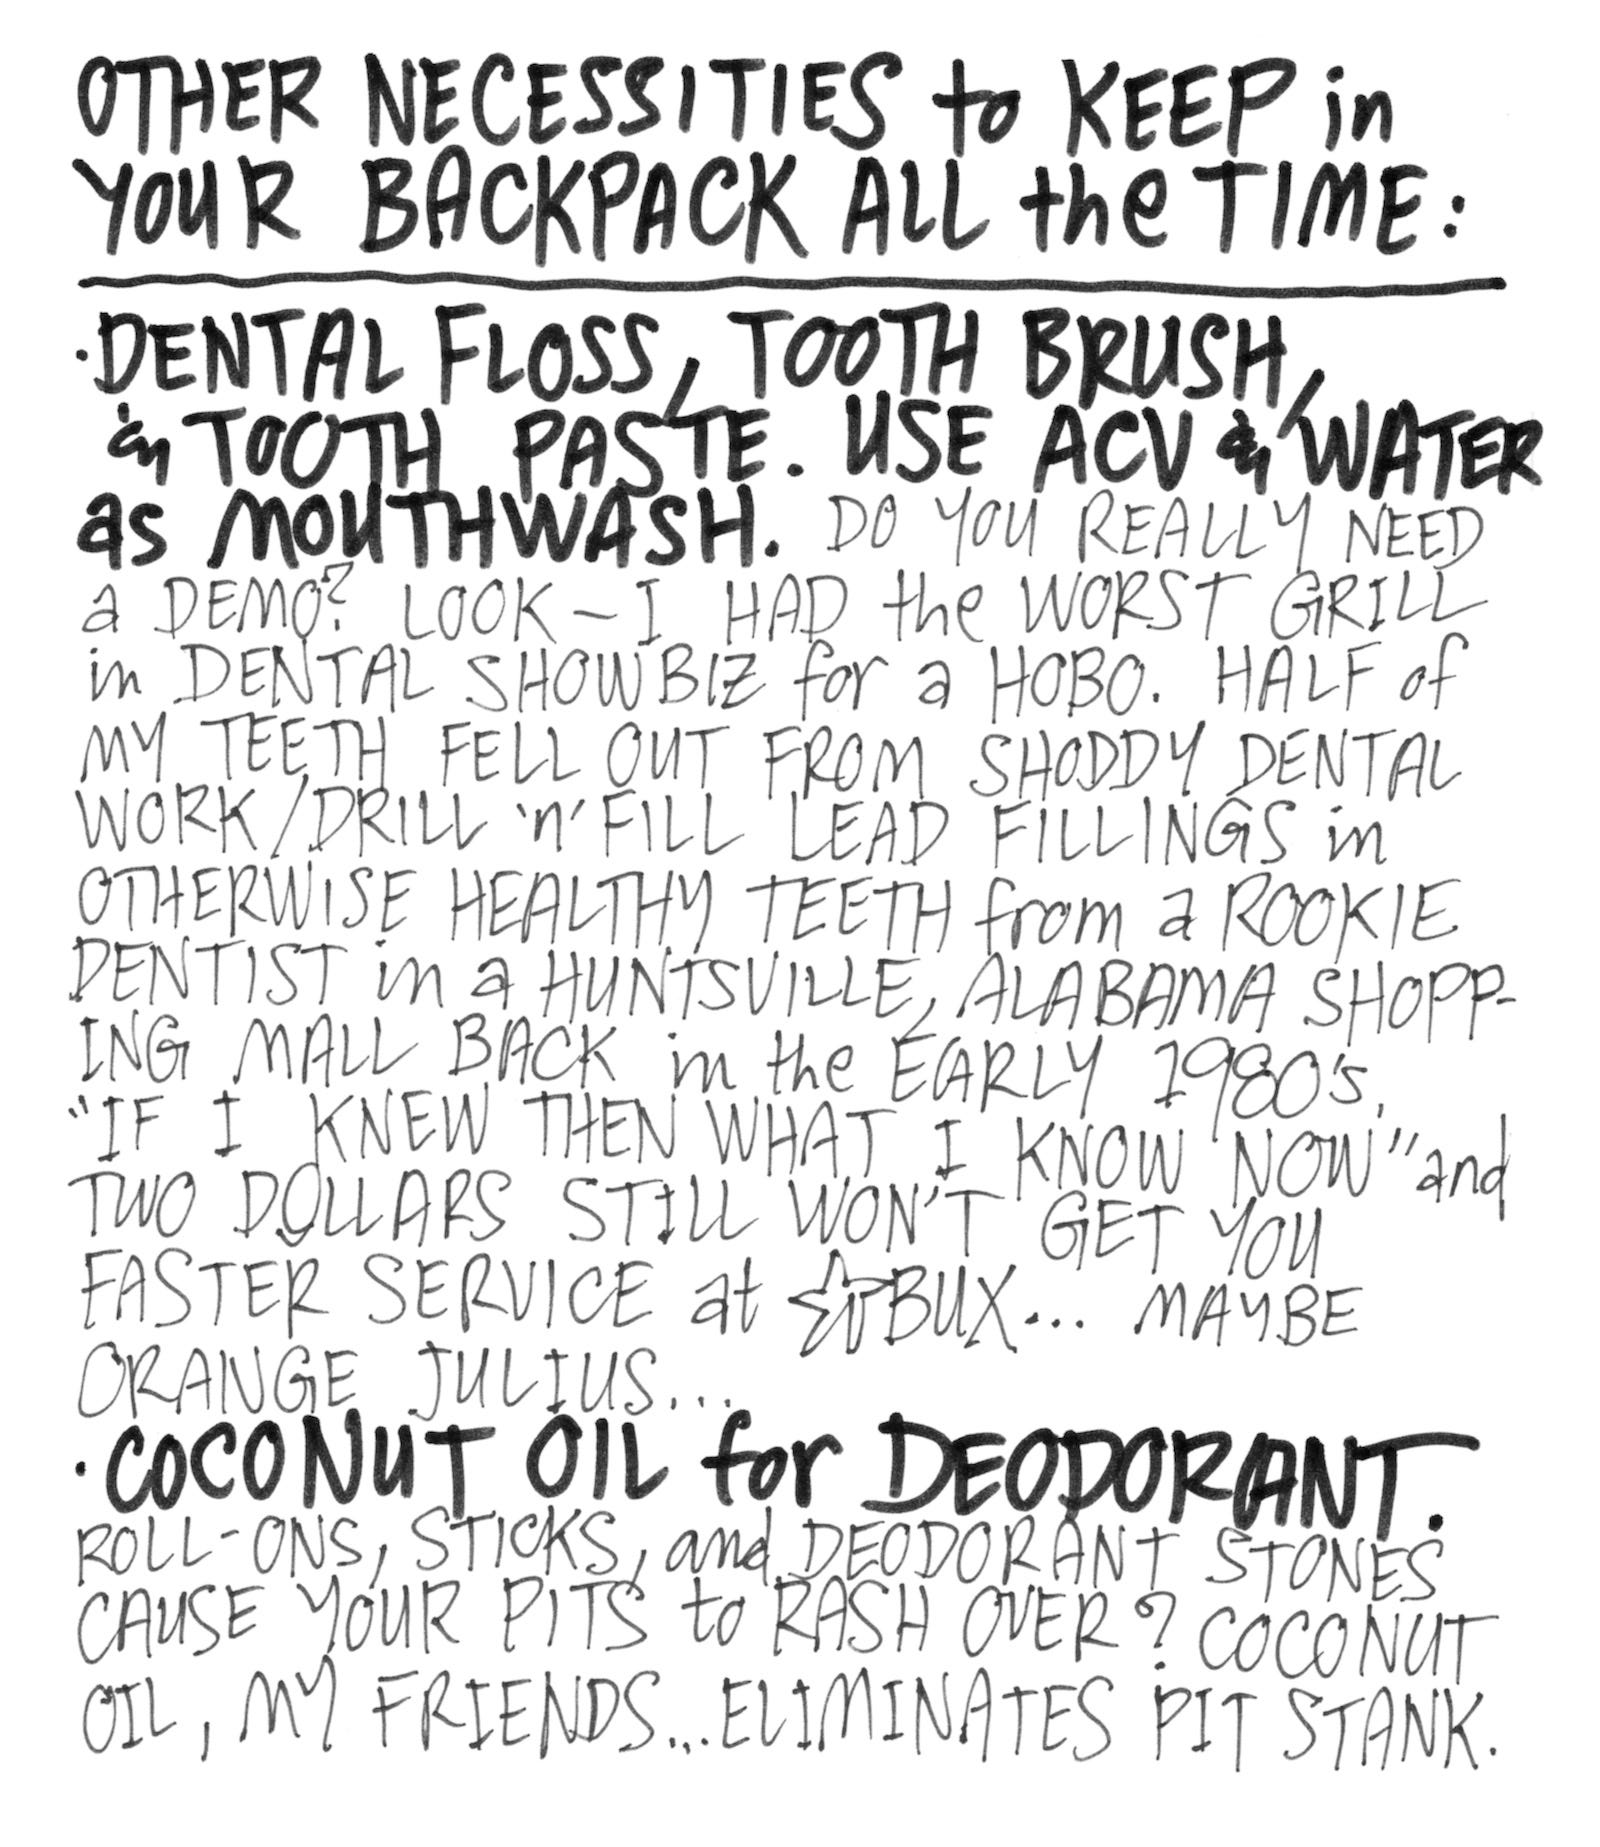 OTHER NECESSITIES to KEEP in
YOUR BACKPACK ALL the TIME:
·DENTAL FLOSS, TOOTH BRUSH,
& TOOTH PASTE. USE ACV & WATER
as MOUTHWASH. DO YOU REALLY NEED
a DEMO? LOOK – I HAD the WORST GRILL
in DENTAL SHOWBIZ for a HOBO. HALF of
MY TEETH FELL OUT FROM SHODDY DENTAL
WORK/DRILL 'n' FILL LEAD FILLINGS in
OTHERWISE HEALTHY TEETH from a ROOKIE
DENTIST in a HUNTSVILLE, ALABAMA SHOPP-
ING MALL BACK in the EARLY 1980's.
"IF I KNEW THEN WHAT I KNOW NOW" and
TWO DOLLARS STILL WON'T GET YOU
FASTER SERVICE at ☆BUX... MAYBE
ORANGE JULIUS...
·COCONUT OIL for DEODORANT.
ROLL-ONS, STICKS, and DEODORANT STONES
CAUSE YOUR PITS to RASH OVER? COCONUT
OIL, MY FRIENDS...ELIMINATES PIT STANK.